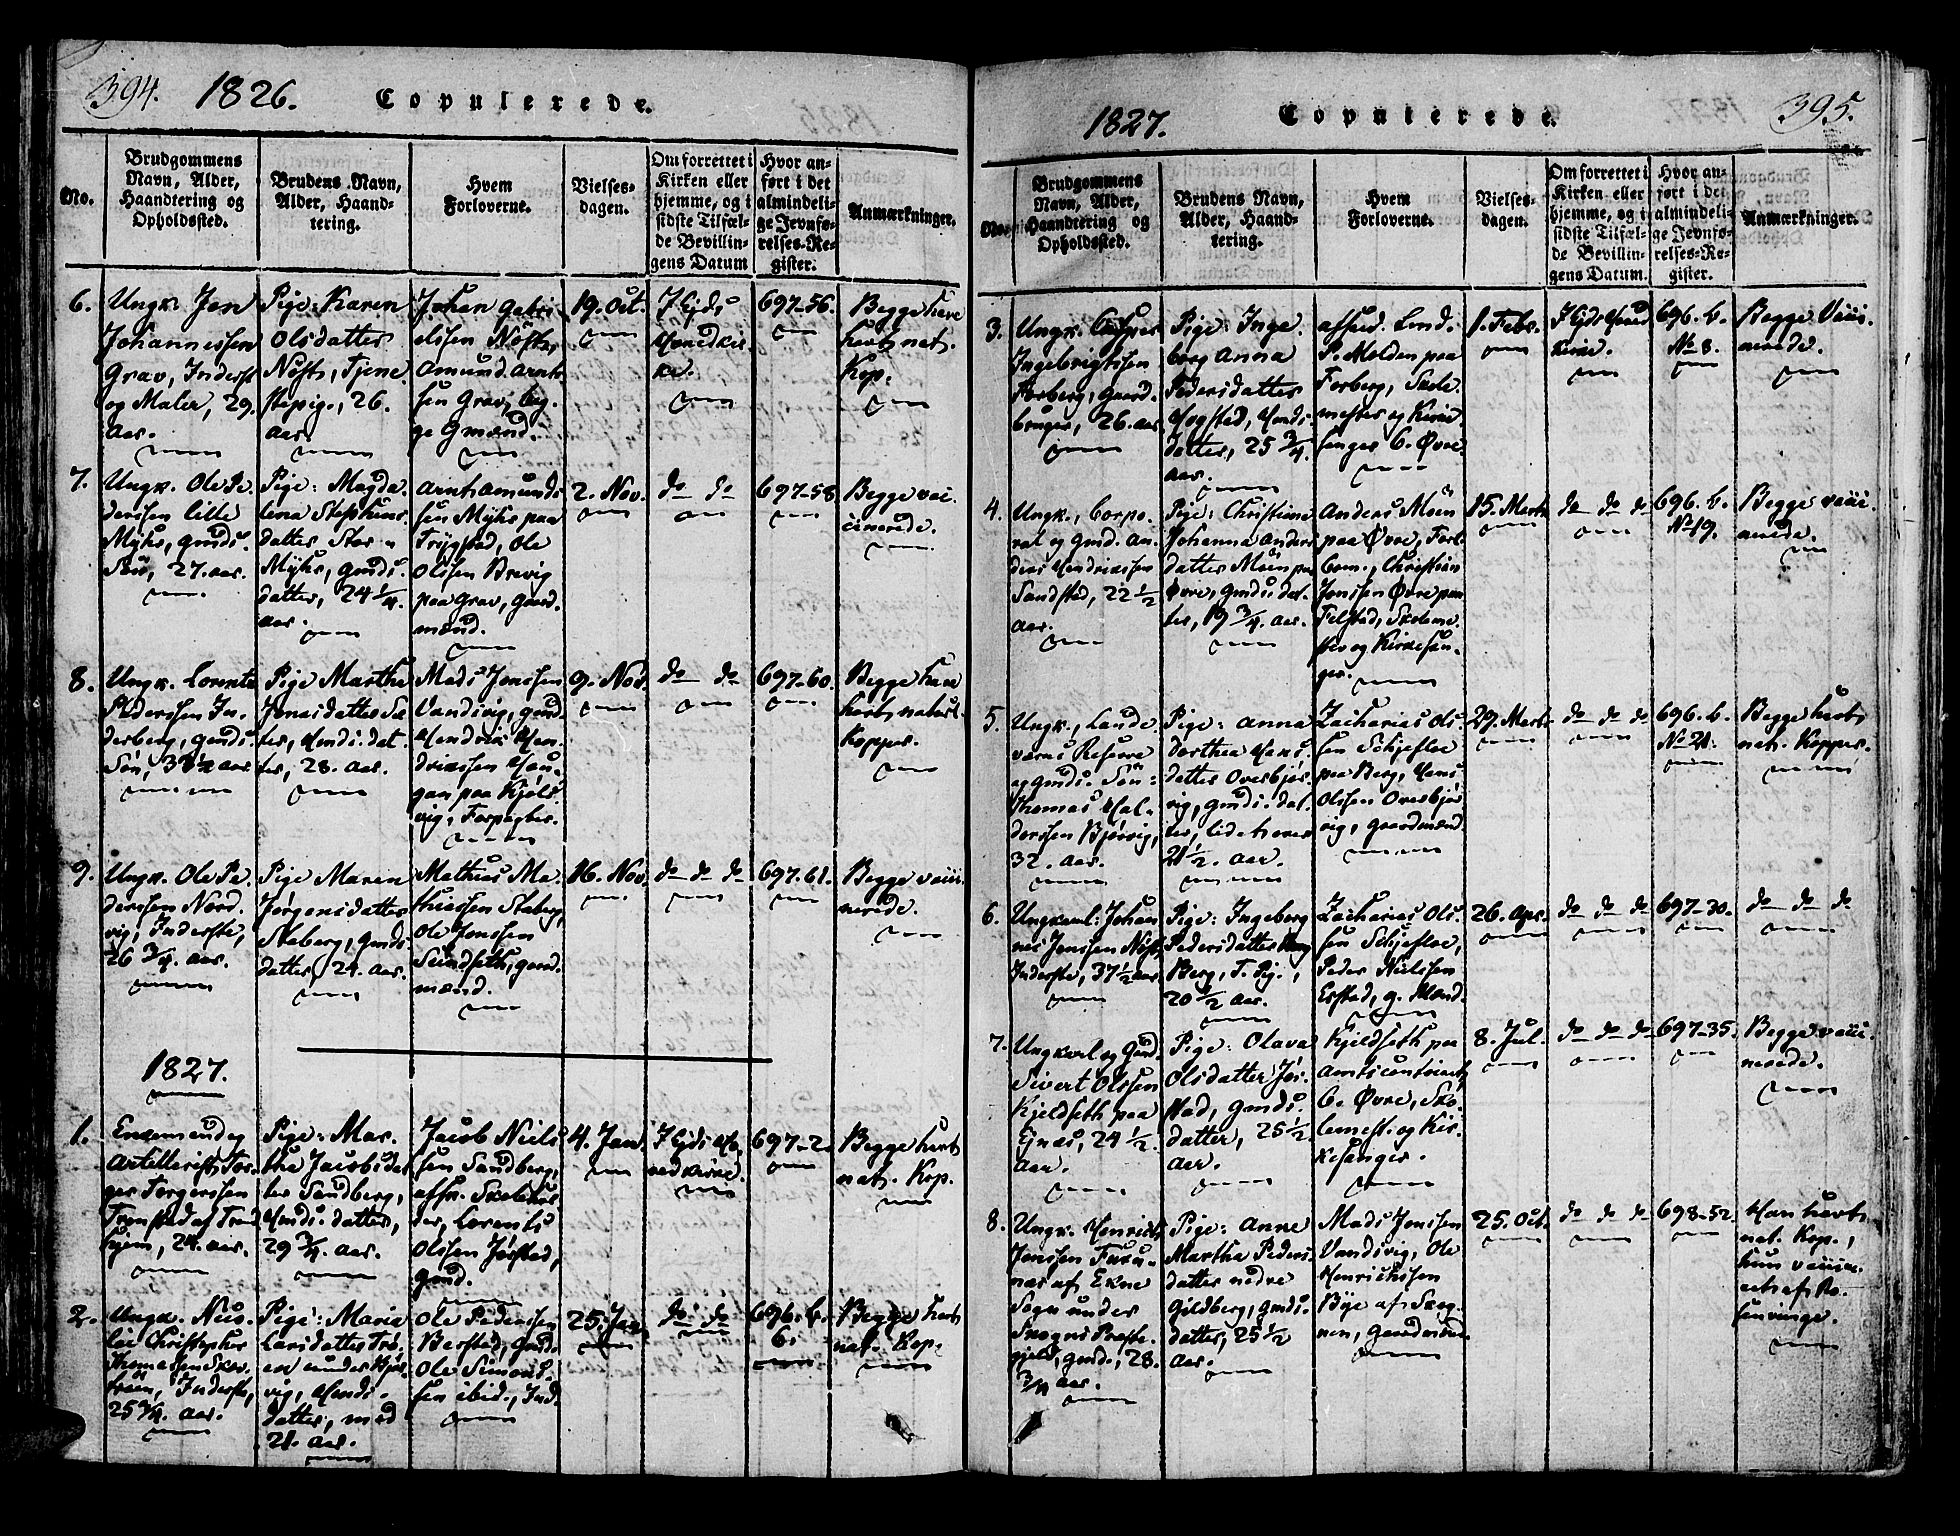 394. 1826. Copulerede.
No.
Brudgommens
Navn, Alder,
Haandtering og
Opholdssted.
Brudens Navn,
Alder, Haand-
tering.
Hvem
Forloverne.
Vielses-
dagen.
Om forrettet i
Kirken eller
hjemme, og i
sidste Tilfæl-
de Bevillin-
gens Datum
Hvor an-
ført i det
almindeli-
ge Jevnfø-
relses-Re-
gister.
Anmærkninger.
6.
Ungk. Jen
Johannessen
Grav, Inderst
og Maler, 29.
Aar.
Pige: Karen
Olsdatter
Nöst, Tjene
stepig., 26.
Aar.
Johan Gabri
elssen Nöst,
Amund Arnt
sen Grav, beg
ge Gmænd.
19. Oct.
I Ejds
Hovedkir
ke.
697-56.
Begge have
havt nat.
Kop.
7.
Ungk. Ole Pe
derssen lille
Myhr, Gmds.
Søn, 27. Aar.
Pige: Magda
lena Stephens
datter Stor
Myhr, Gmds.
datter, 24 1/4.
Aar.
Arnt Amund
sen Myhr paa
Trygstad, Ole
Olssen Brevig
paa Grav, Gaard
mænd.
2. Nov.
do do
697-58.
Begge vacci
nerede.
8.
Ungk. Lorents
Pederssen In
derberg, Gmds.
Søn, 33 1/2 Aar
Pige Martha
Jonasdatter
Hmds. dat
ter, 28. Aar.
Mads Jonssen
Vandvig, Gmd
Hendrik Hen
dricssen Hau
gan paa Kjøls
vig, Forpagter.
9. Nov.
do do
697-60.
Begge have
havt naturl.
Kopper.
9.
Ungk. Ole Pe
derssen Nord
vig, Inderste,
26 3/4. Aar.
Pige Maren
Jørgensdatter
Staberg, Gmds
datter, 24. Aar.
Mathias Ma
thiassen Staberg,
Ole Jonssen
Sundseth, Gmd.
mænd.
16. Nov.
do do do
697-61.
Begge vacci
nerede.
1827.
1.
Enkemand og
Artillerist Tor
ger Torgerssen
Tronstad af Trond
hjem, 24. Aar.
Pige: Mar
tha Jacobsdat
ter Sandberg,
Hmds. datter,
29 3/4. Aar.
Jacob Niels
sen Sandberg,
Lorents
Olssen Jørstad,
Gmd.
4. Jan.
I Ejds Ho
vedkirke.
697-2.
Begge havt
nat. Kop.
2.
Ungk. Nico
lai Christopher
Thomassen
Inderste,
25 3/4. Aar.
Pige: Maria
Larsdatter
under
vig, Hmds.
datter, med
21. Aar.
Ole Pederssen
Barstad, Gmd.
Ole Simons
sen ibid., Ind.
25. Jan.
do do
696. b.
6.
Begge havt
nat. Kop.
1827. Copulerede. 395.
No.
Brudgommens
Navn, Alder,
Haandtering og
Opholdssted.
Brudens Navn,
Alder, Haand-
tering.
Hvem
Forloverne.
Vielses-
dagen.
Om forrettet i
Kirken eller
hjemme, og i
sidste Tilfæl-
de Bevillin-
gens Datum.
Hvor an-
ført i det
almindeli-
ge Jevnfø-
relses-Re-
gister.
Anmærkninger.
3.
Ungk. Casper
Ingebregtssen
Forberg, Gaard
bruger, 26. Aar
Pige: Inge
borg Anna
Pedersdatter
Hogstad, Hmds.
datter, 25 3/4.
Aar.
P. Molden paa
Forberg, Skole
mester og Kirke
sanger C. Øvre.
1. Febr.
I Ejds Hoved
Kirke.
696. b.
No 8.
Begge Vacci
nerede.
4.
Ungk., Corpo
ral og Gmd. An
ders Hendricssen
Sandstad, 22 1/2
Aar.
Pige: Christiane
Johanna Anders
datter Moen paa
Øvre, Gmds. dat
ter, 19 3/4. Aar.
Anders Moen
paa Øvre, Forl.
Christian
Jonssen Øvre paa
Felstad, Skoleme.
ster og Kirkesan
ger.
15. Marts
do do do
696. b.
No 19.
Begge vacci
nerede.
5.
Ungk., Lande
værns Reserve
og Gmds. Søn
Thomas Hal
dorssen Bjørvig,
32. Aar.
Pige: Anna
Dorthea Hans
datter Overbjør
vig, Gmds. dat
ter, lidt over
21 1/2. Aar.
Zacharias Ols
sen Schjefloe
paa Berg, Hans
Olssen Overbjør
vig, Gaardmænd
29. Marts
do do do
696. b.
No 21.
Begge havt
nat. Kopper.
6.
Ungkarl: Johan
nes Jonssen Nöst,
Inderste, 37 1/2 Aar
Pige: Ingeborg
Pedersdatter
Berg, T. Pig.,
20 1/2 Aar.
Zacharias Ols
sen Schjefloe,
Peder Nielssen
Erstad, G. Mænd.
26. Apr.
do do do
697-30.
do do do
7.
Ungkarl og Gmd.
Sivert Olssen
Kjeldseth paa
Ejnæs, 24 1/2.
Aar.
Pige: Olava
Olsdatter Jør
stad, Gmds.
datter, 25 1/2
Aar.
Kjeldseth paa
C. Øvre, Sko
lemest. og Kir
kesanger.
8. Jul.
do do do
697-35.
Begge vacci
nerede.
8.
Ungk. Henrich
Jonssen Furu
næs af Ekne
Sogn under
Skogns Præste
gjeld, Gmd., 28.
3/4 Aar.
Pige: Anne
Martha Peders
datter nedre
Gildberg, Gmds.
datter, 25 1/2
Aar.
Mads Jonssen
Vandsvig, Ole
Henrichssen
Bye af Skog
nen, Gaardmænd
25. Oct.
do do do
698-52.
Han havt
nat. Kop.,
hun vaccin.
att. af Ro
senvinge.